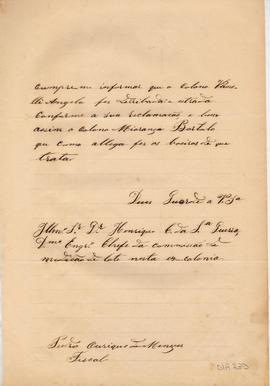 Cumpre-me informar que o Colono
Angelo foi a estrada
Conforme a sua reclamação e bem
assim o Colono Bortolo
que como allega fez os boeiros de que
trata.
Deus Guarde a V.Sª
Illmo. Sr. Dr. Henrique C. da Sª
Dmo. Engrº Chefe da commissão de
medição de lotes nesta ex-colonia.
Pedro Ourique de Menezes
Fiscal